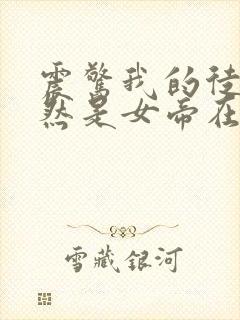 震驚我的徒
然是女帝在
雪藏銀河